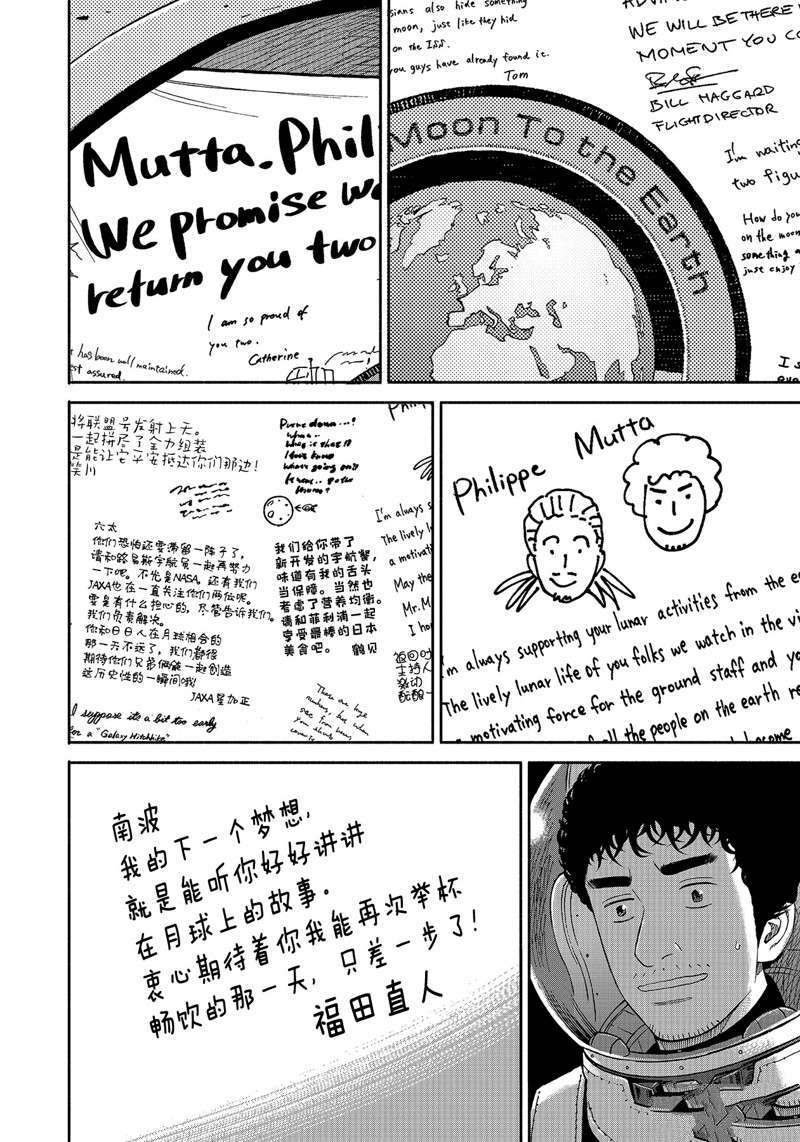 sians also hide something
moon, just like they hid
on the ISS.
you guys have already found it.
Tom
WE WILL BE THERE
MOMENT YOU CO
BILL HAGGARD
FLIGHT DIRECTOR
I'm waiting
two figu
How do you
on the moon
something
just enjoy
Moon To the Earth
Mutta. Phil
We promise we
return you two
I am so proud of
you two.
Catherine
has been well maintained.
st assured.
Philippe
Mutta
I'm always supporting your lunar activities from the ea
The lively lunar life of you folks we watch in the vi
a motivating force for the ground staff and yo
all the people on the earth re
become
I'm always
The lively lun
a motivati
May the
Mr.M
I ho
返回时
主持人
激动
酩酊
将联盟号发射上天。
一起拼尽了全力组装
是能让它平安抵达你们那边!
笑川
六太
你们恐怕还要滞留一阵子了,
请和路易斯宇航员一起再努力
一下吧。不光是NASA,还有我们
JAXA也在一直关注你们两位呢。
要是有什么担心的,尽管告诉我们。
我们负责解决。
你和日日人在月球相会的
那一天不远了,我们都很
期待你们兄弟俩能一起创造
这历史性的一瞬间哦!
JAXA星加正
我们给你带了
新开发的宇航餐,
味道有我的舌头
当保障。当然也
考虑了营养均衡。
请和菲利浦一起
享受最棒的日本
美食吧。 鹤贝
These are huge
I suppose it's a bit too early
for a "Galaxy Hitchhike"
南波
我的下一个梦想,
就是能听你好好讲讲
在月球上的故事。
衷心期待着你我能再次举杯
畅饮的那一天,只差一步了!
福田直人